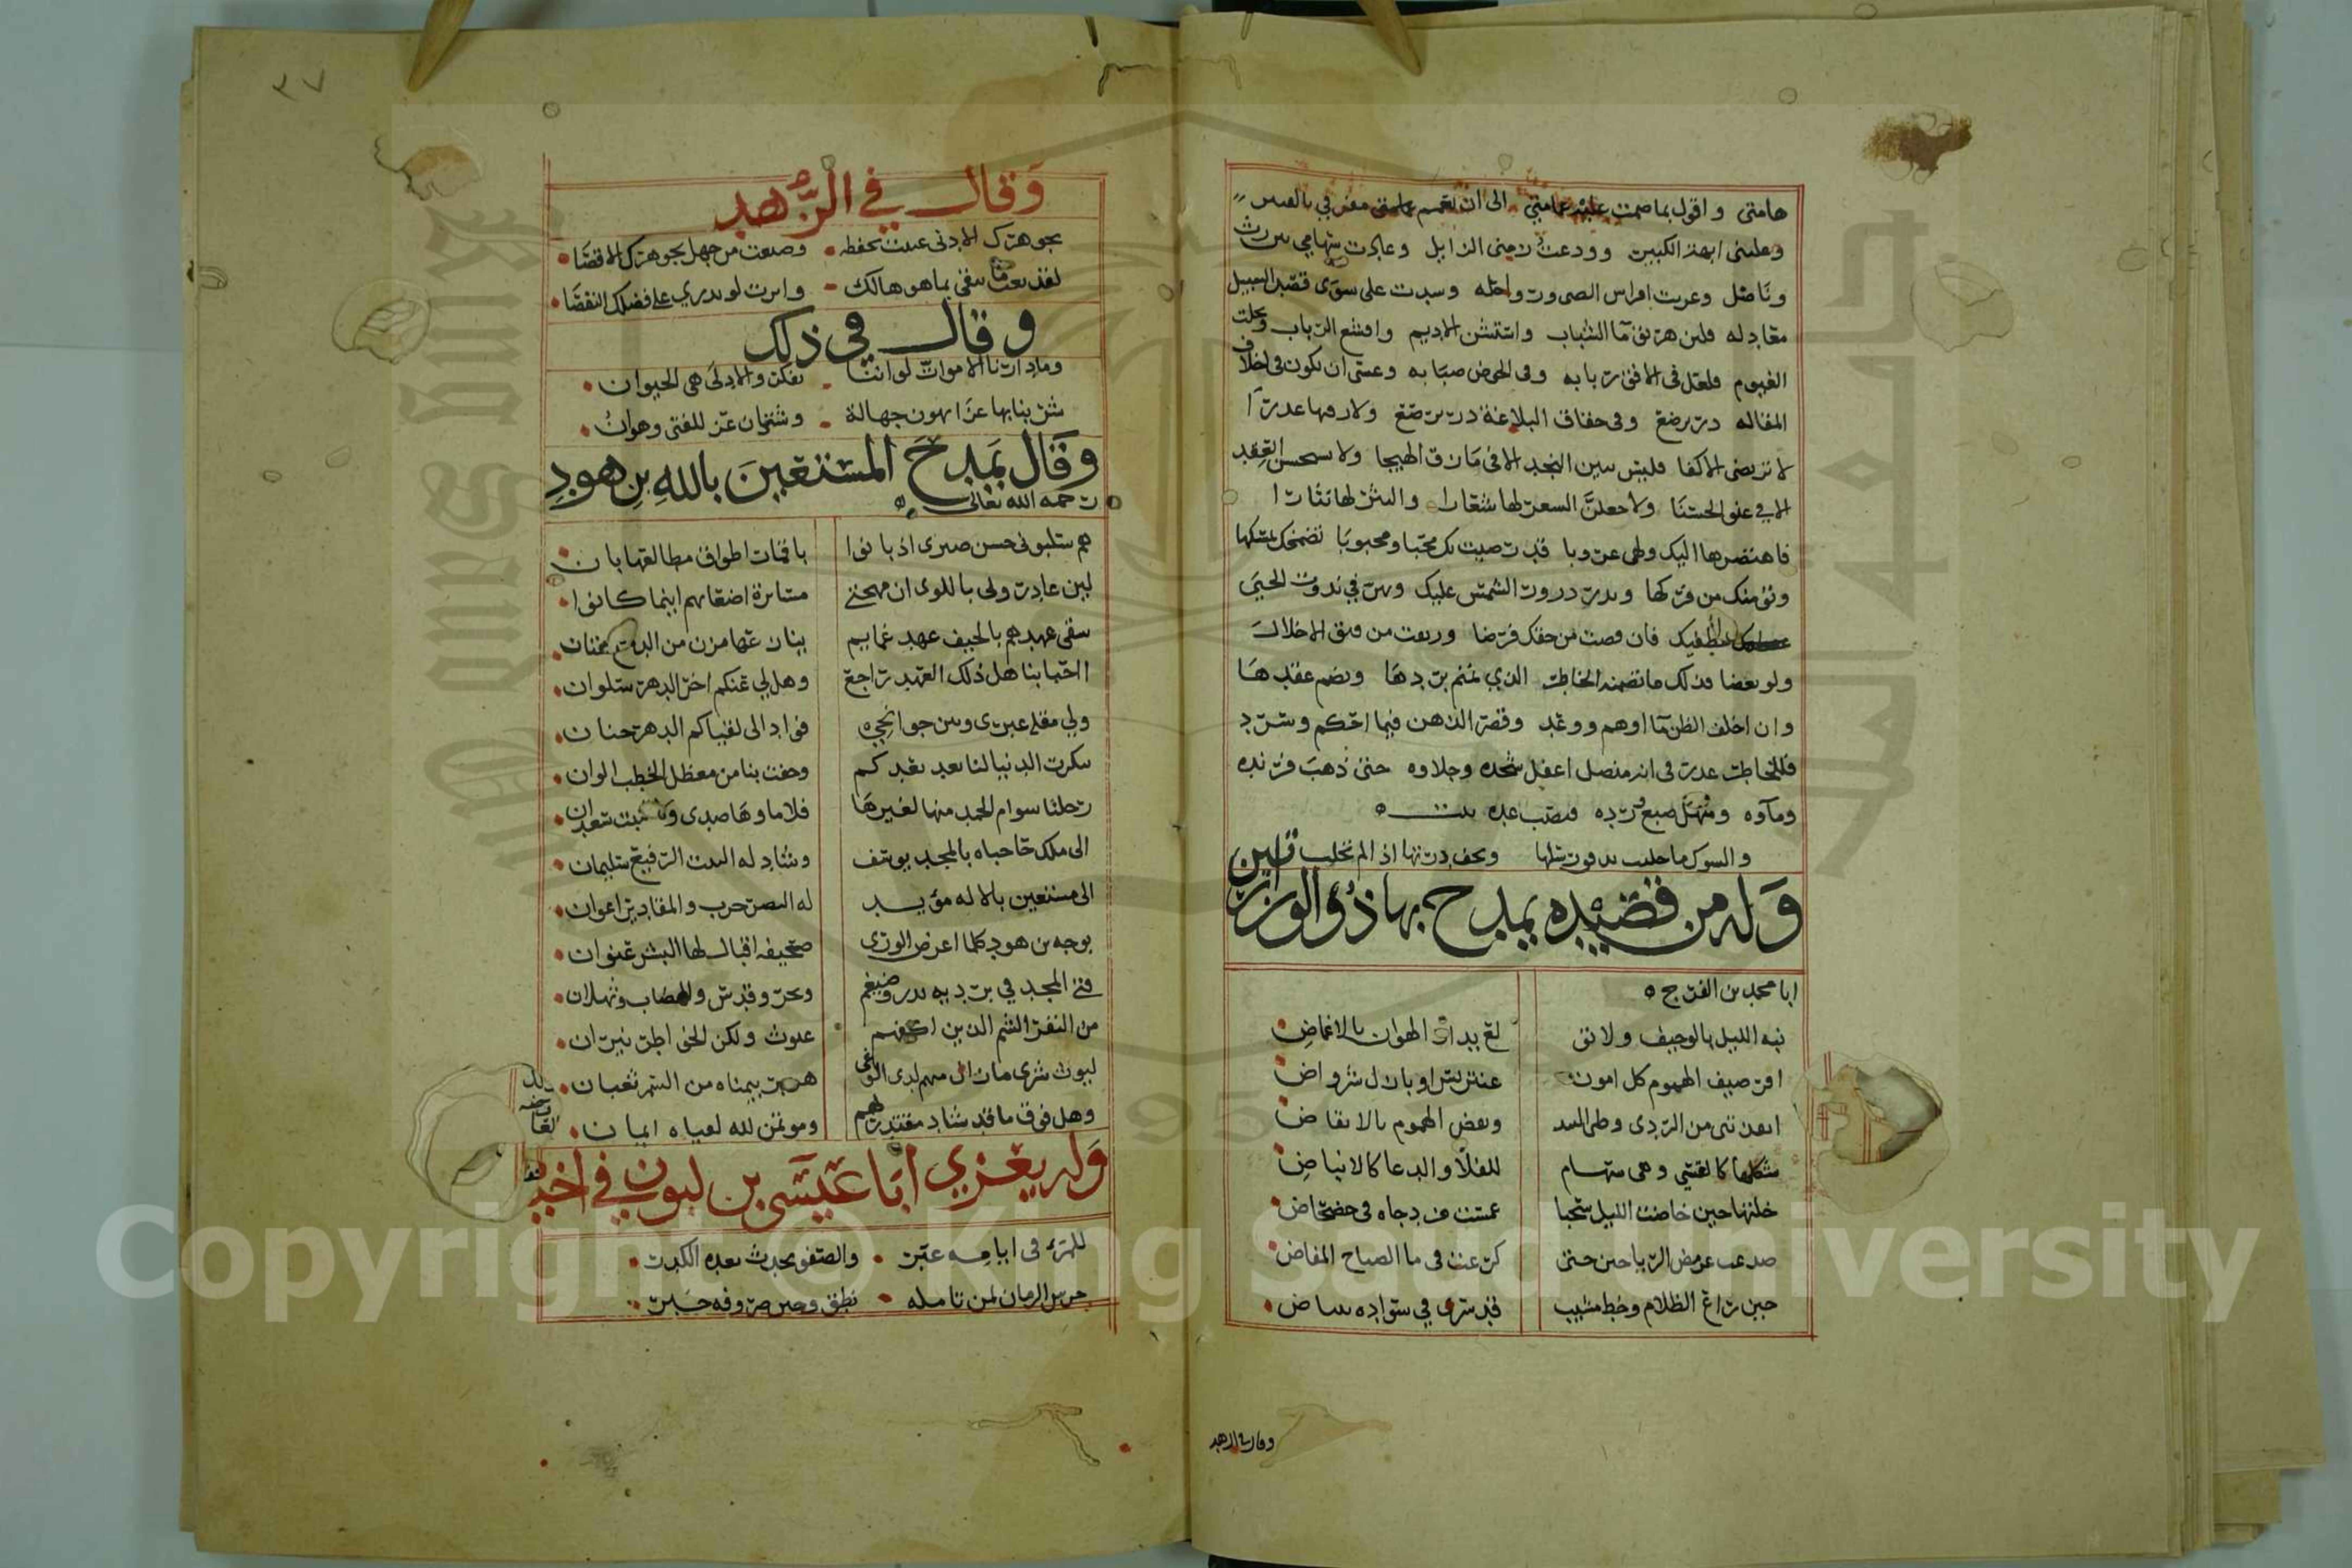 هامتي واقول بما صمت عليه عمامتي الى ان
وعلمني ابهة الكبير وودعت من الرذايل وعادت سهامي بين رث
وناصل وعريت افراس الصبى ورواحله وسدت على سوى قصد السبيل
معادله فلين هريق ما الشباب واستشن الاديم واقشع الرباب وبخلت
الغيوم فلعل في الافق ربابه وفي الحوض صبابه وعسى ان يكون في اخلاف
المقاله در يرضع وفي حقاق البلاغة در يرصع ولا ازفها عذرآ
لا ترضى الاكفا فليس بين النجد الا في مازق الهيجا ولا يستحسن العقد
الا في عنق الحسنا ولاجعلن السعر لها شعارا والنثر لها نثارا
فاهتصرها اليك وطى عروبا قد رضيت بك محبا ومحبوبا تضمخك بمسكها
وتؤمنك من فركها وبدر درور الشمس عليك وسر في ندوة الحي
عطفيك فان قضت من حقك فرضا ورتعت من فتق الاخلال
ولو بعضا فذلك ما تضمنه الخاطر الذي نمنم بردها ونضم عقدها
وان اخلف الظن ما اوهم ووعد وقصر الذهن فيما احكم وسرد
فللخاطر عذر في انه منصل اغفل شحذه وجلاوه حتى ذهب فرنده
وماوه ومنهل ضيع ورده فنضب عده
والسوك ما حلبت تدفق رسلها وتجف درتها اذا لم تحلب
وله من قصيده يمدح بها ذو الوزارتين
ابا محمد بن الفرج ه
نبه الليل بالوجيف ولا تق لع بيدار الهوان بالاغماض
اقر ضيف الهموم كل امون عنتريس او بازل شرواض
ابعدتني من الردى وطى البيد وبعض الهموم بالانقاض
مشكلها كالقسي وهى سهام للفلا والدعا كالانباض
خلتها حين خاضت الليل سحبا غمست من دجاه في خضخاض
صدعت عرمض الربا حين حتى كرعت في ما الصباح المفاض
حين راع الظلام وخط مشيب قد سرى في سواده ببياض
وقال في الزهد
٣٧
وقال في الزهد
بجوهرك الادنى عنيت بحفظه وضيعت من جهل بجوهرك الاقصا
لقد بعت ما يبقى بما هو هالك واثرت لو تدري على فضلك النقصا
وقال في ذلك
وما دارنا الاموات لو اننا نفكر والاخرى هي الحيوان
شربنا بها عزا بهون جهالة وشتان عز للفتى وهوان
وقال يمدح المستعين بالله بن هود
رحمه الله تعالى
هم سلبوني حسن صبري اذ بانوا باقمار اطواق مطالعها بان
لين غادروني باللوى ان مهجتي مسايرة اضعانهم اينما كانوا
سقى عهدهم بالخيف عهد غمايم ينازعها مزن من الدمع هتان
ااحبابنا هل ذلك العهد راجع وهل لي عنكم اخر الدهر سلوان
ولي مقلة عبرى وبين جوانحي فواد الى لقياكم الدهر حنان
تنكرت الدنيا لنا بعد بعدكم وحفت بنا من معظل الخطب الوان
رحلنا سوام الحمد منها لغيرها فلا ماوها صدى ولا نبت سعدان
الى ملك حاباه بالمجد يوسف وشاد له البيت الرفيع سليمان
الى مستعين بالاله مؤيد له النصر حزب والمقادير اعوان
بوجه بن هود كلما اعرض الورى صحيفة اقبال لها البشر عنوان
فتى المجد في برديه بدر وضيغم وبحر وقدس والهضاب وثهلان
من النفر الشم الذين اكفهم غيوث ولكن الخواطر نيران
ليوث شرى مازال منهم لدى الوغى هزبر بيمناه من السمر ثعبان
وهل فوق ما قد شاد مقتدر لهم ومؤتمن لله لقياه ايمان
وله يعزي ابا عيسى بن لبون في اخيه
للمرء في ايامه عبر والصفو يحدث بعده الكدر
خرس الزمان لمن تامله نطق وخبر صروفه خبر